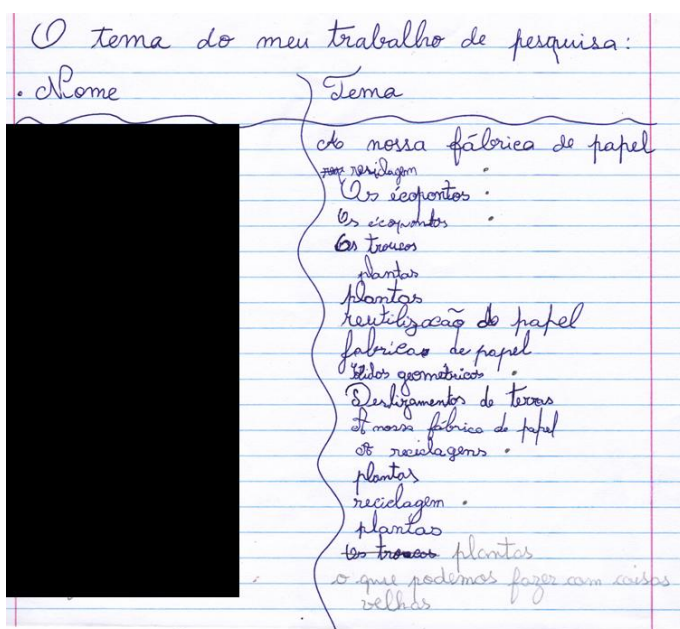 O tema do meu trabalho de pesquisa:
. Nome Tema
A nossa fábrica de papel
resiclagem
Os écopontos .
Os écopontos
Os troucos
plantas
plantas
reutilizacão do papel
fabricas de papel
geometricos
Deslizamentos de terras
A nossa fábrica de papel
A reciclagens
plantas
reciclagem
plantas
Os troucos plantas
o que podemos fazer com coisas
velhas